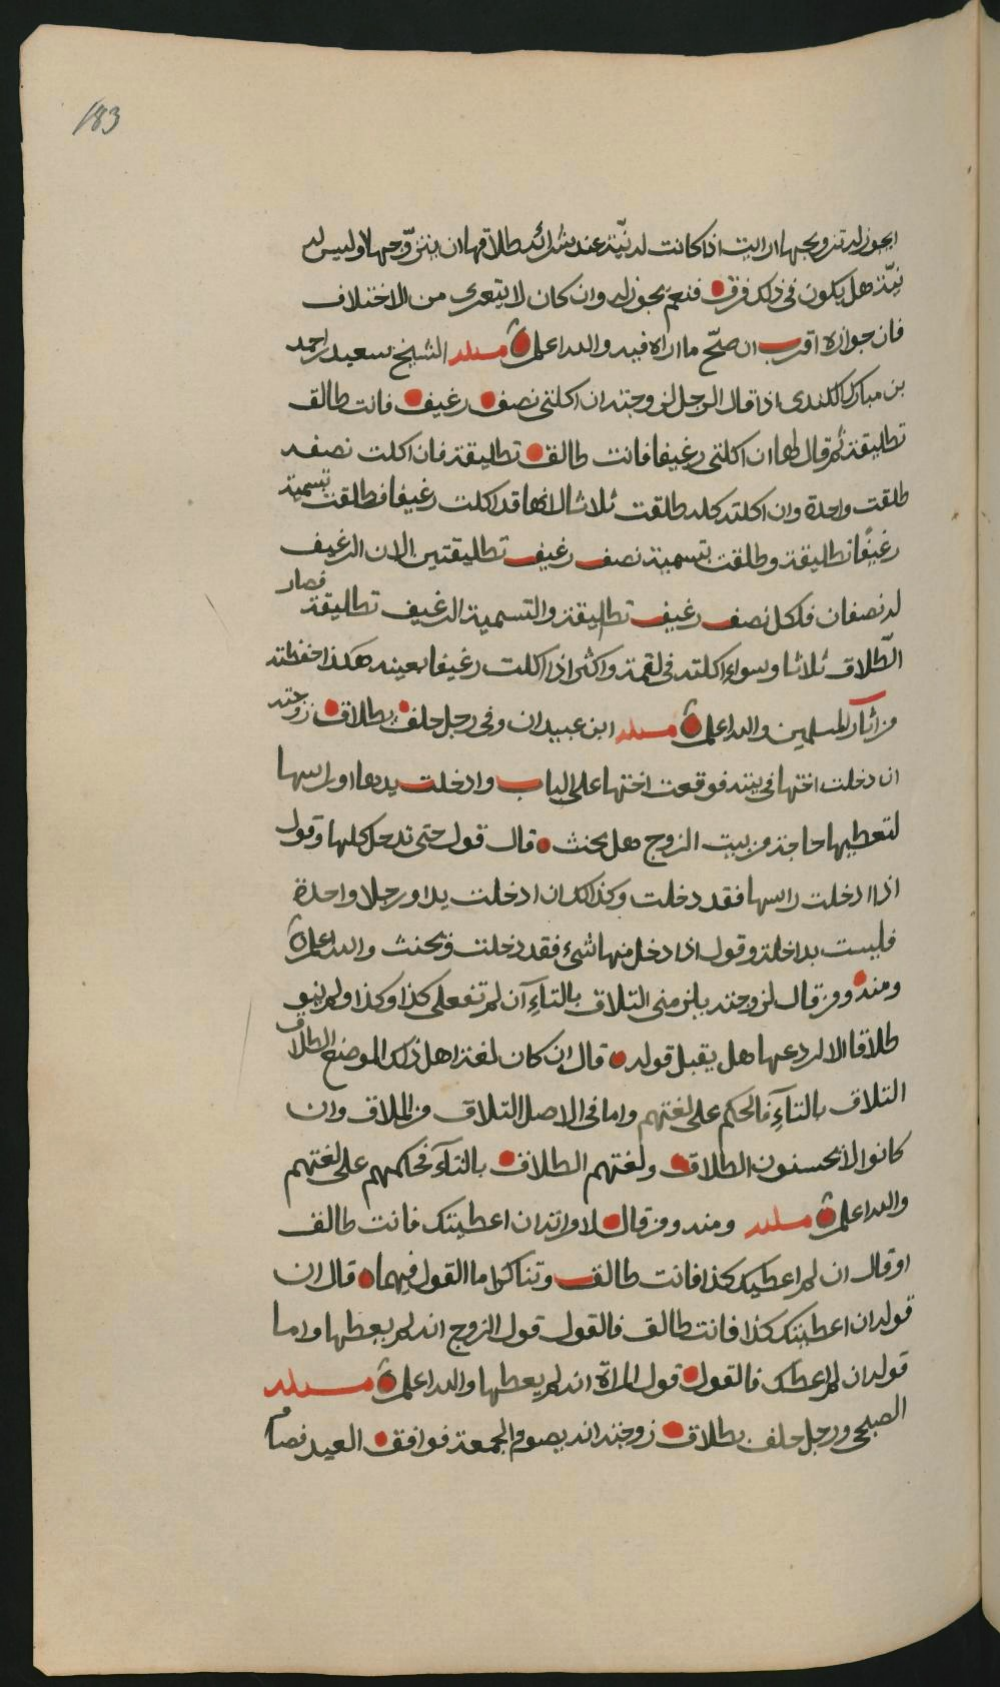 183
ايجوز له تزويجها ارايت اذا كانت له نيّة عند شرائه طلاقها ان يتزوّجها او ليس له
نيّة هل يكون في ذلك فرق فنعم يجوز له وان كان لا يتعرى من الاختلاف
فان جوازه اقرب ان صحّ ما اراه فيه والله اعلم مسئله الشيخ سعيد بن احمد
بن مبارك الكندى اذا قال الرجل لزوجته ان اكلتى نصف رغيف فانت طالق
تطليقة ثم قال لها ان اكلتى رغيفا فانت طالق تطليقة فان اكلت نصفه
طلقت واحدة وان اكلته كله طلقت ثلاثا لانها قد اكلت رغيفا فطلقت بتسمية
رغيفًا تطليقة وطلقت بتسمية نصف رغيف تطليقتين لان الرغيف
له نصفان فلكل نصف رغيف تطليقة والتسمية الرغيف تطليقة فصار
الطّلاق ثلاثا وسواء اكلته في لقمة واكثر اذا اكلت رغيفا بعينه هكذا حفظته
من آثار المسلمين والله اعلم مسئله ابن عبيدان وفي رجل حلف بطلاق زوجته
ان دخلت اختها في بيته فوقعت اختها على الباب وادخلت يدها او راسها
لتعطيها حاجة من بيت الزوج هل يحنث قال قول حتى تدخل كلها وقول
اذا ادخلت راسها فقد دخلت وكذلك ان ادخلت يدا ورجلا واحدة
فليست بداخلة وقول اذا دخل منها شىء فقد دخلت ويحنث والله اعلم
ومنه ومن قال لزوجته يلزمنى التلاق بالتاءِ ان لم تفعلى كذا وكذا ولم ينو
طلاقا الا لردعها هل يقبل قوله قال ان كان لغة اهل ذلك الموضع الطلاق
التلاق بالتاءِ فالحكم على لغتهم واما في الاصل التلاق من الملاق وان
كانوا لا يحسنون الطلاق ولغتهم الطلاق بالتآء فحكمهم على لغتهم
والله اعلم مسئله ومنه ومن قال لامراته ان اعطيتك فانت طالق
او قال ان لم اعطيك كذا فانت طالق وتناكرا ما القول فيهما قال ان
قوله ان اعطيتك كذا فانت طالق فالقول قول الزوج انه لم يعطها واما
قوله ان لم اعطك فالقول قول المراة انه لم يعطها والله اعلم مسئله
الصبحى ورجل حلف بطلاق زوجته انه يصوم الجمعة فوافق العيد فصام